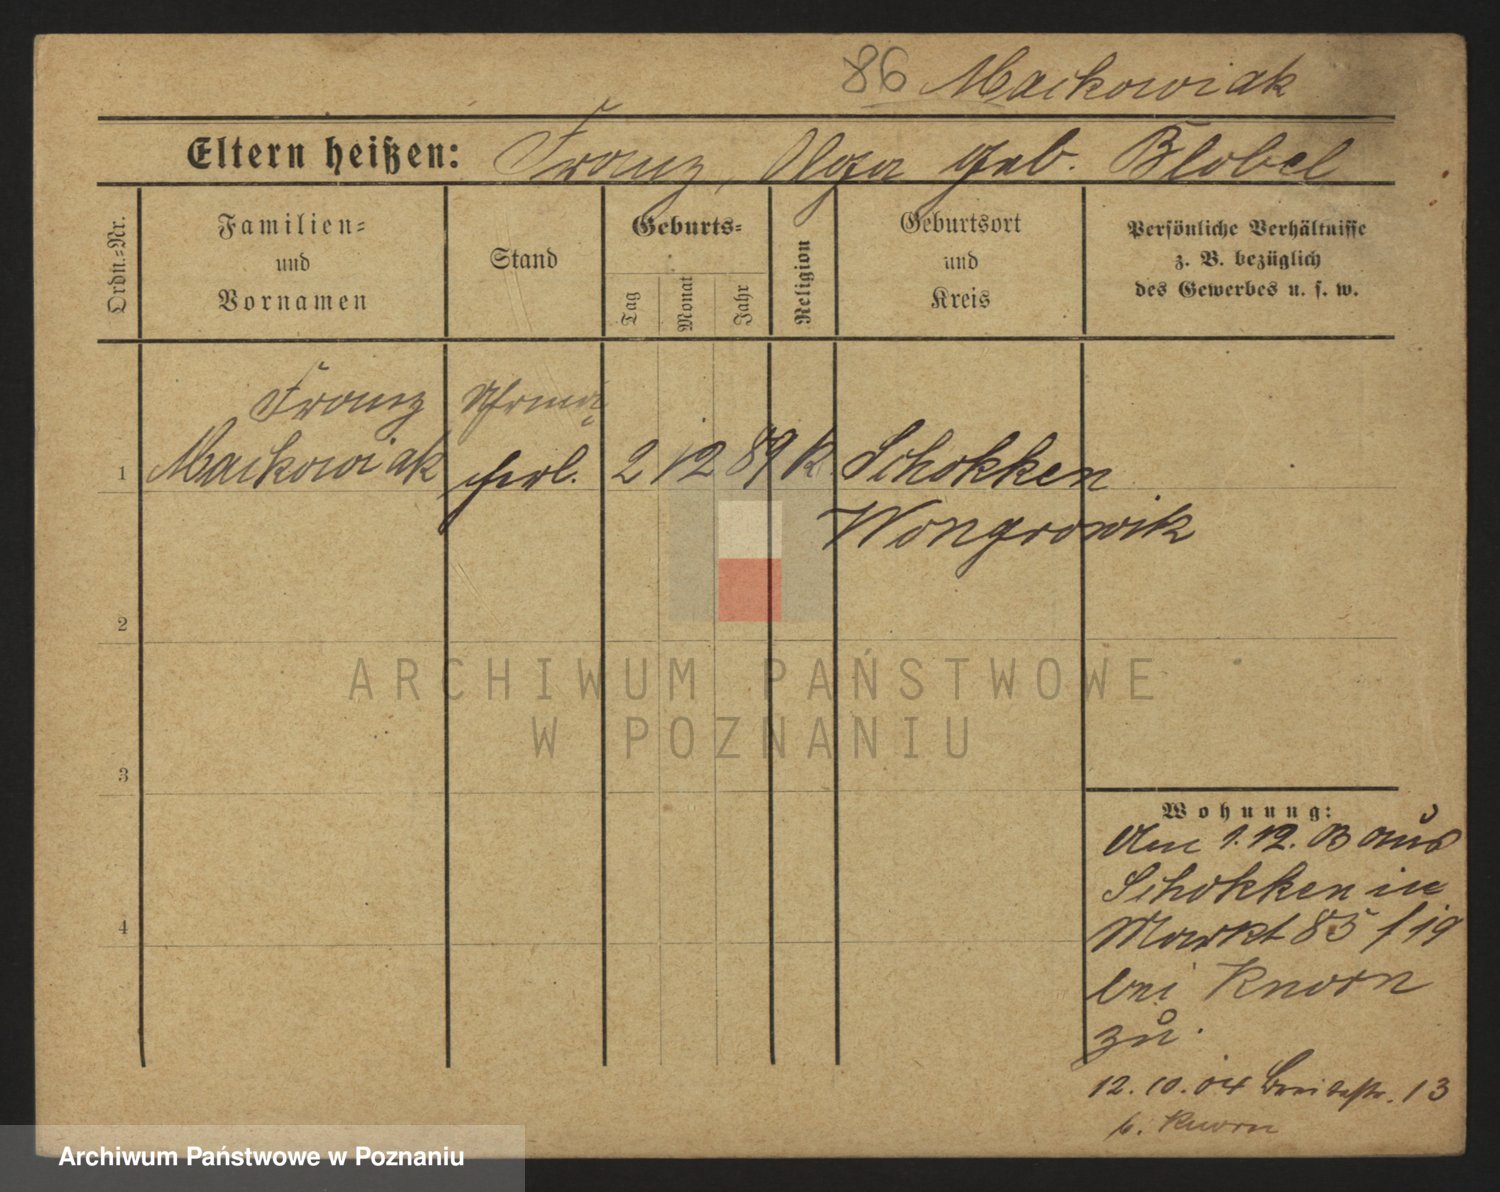 86 Mackowiak
Eltern heißen: Franz, Olga geb. Blobel
Ordn.-Nr.
Familien-
und
Vornamen
Stand
Geburts-
Tag
Monat
Jahr
Religion
Geburtsort
und
Kreis
Persönliche Verhältnisse
z. B. bezüglich
des Gewerbes u. s. w.
Franz
1 Mackowiak 2 12 89 K Schokken
Wongrowik
2
3
4
Wohnung:
Am 1.12. 03 aus
Schokken in
Markt 85 / 19
bei Knorn
zu.
12. 10. 04 Breitestr. 13
b. Knorn
ARCHIWUM PAŃSTWOWE
W POZNANIU
Archiwum Państwowe w Poznaniu